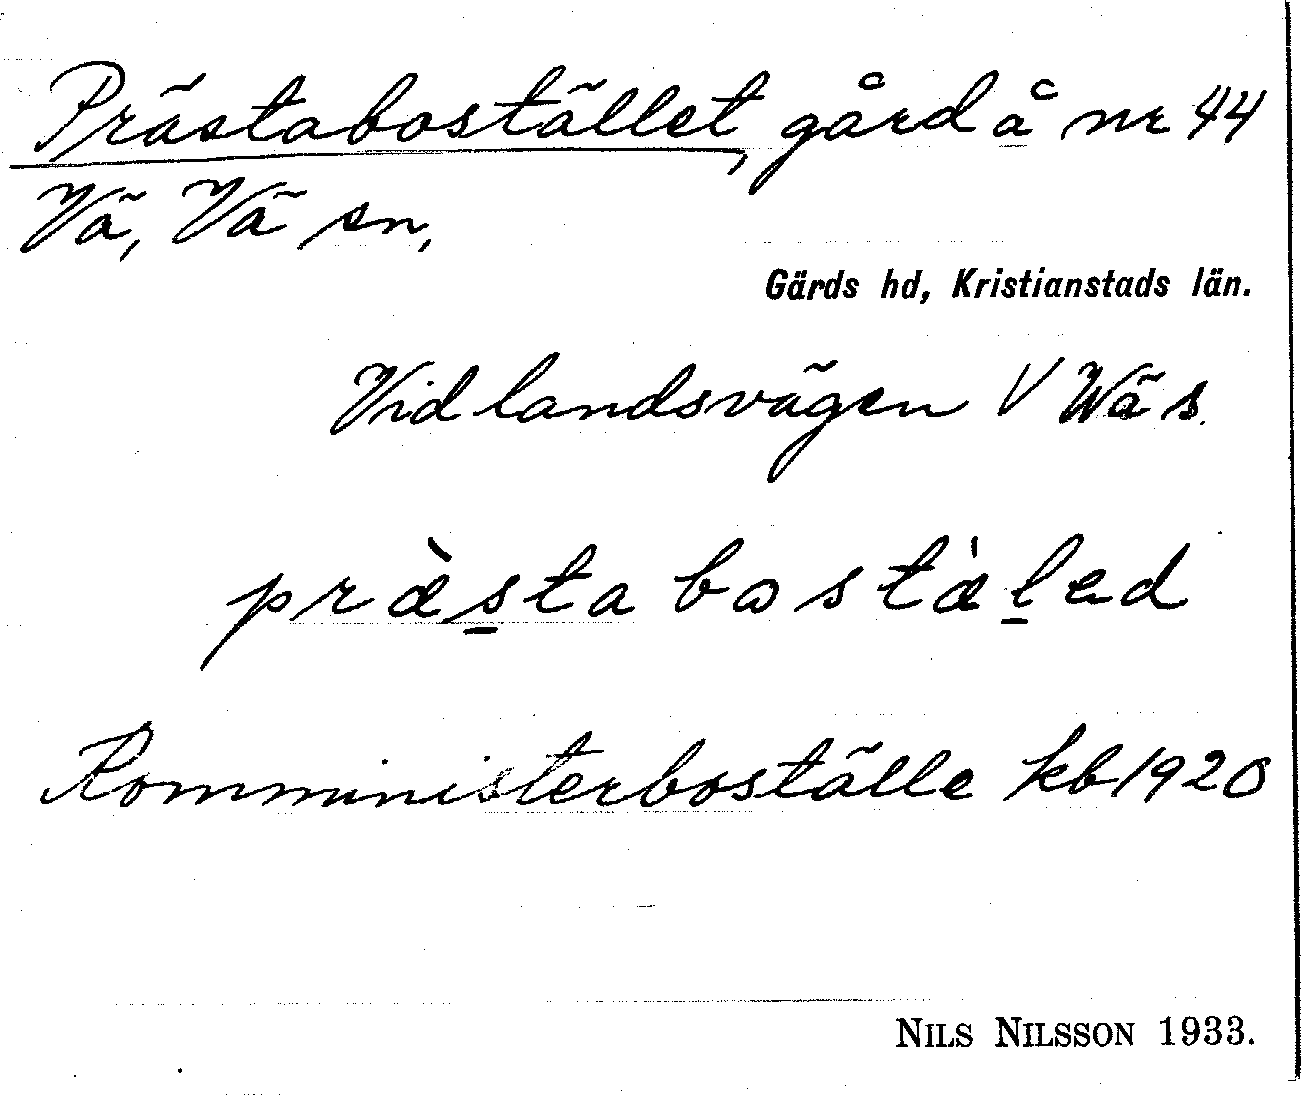 Prästabostället, gård å nr 44
Vä, Vä sn,
Gärds hd, Kristianstads län.
Vid landsvägen V Wä s.
præ̀s̱ta bostæ̀ḻed
Komministerboställe kb 1920
NILS NILSSON 1933.